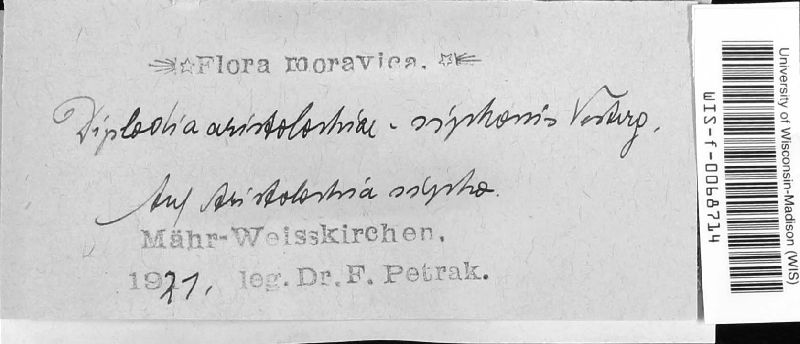 Flora moravica.
Diplodia aristolochiae-siphonis Vesterg.
Auf Aristolochia sipho.
Mähr-Weisskirchen,
1921, leg. Dr. F. Petrak.
University of Wisconsin-Madison (WIS)
WIS-f-0068714